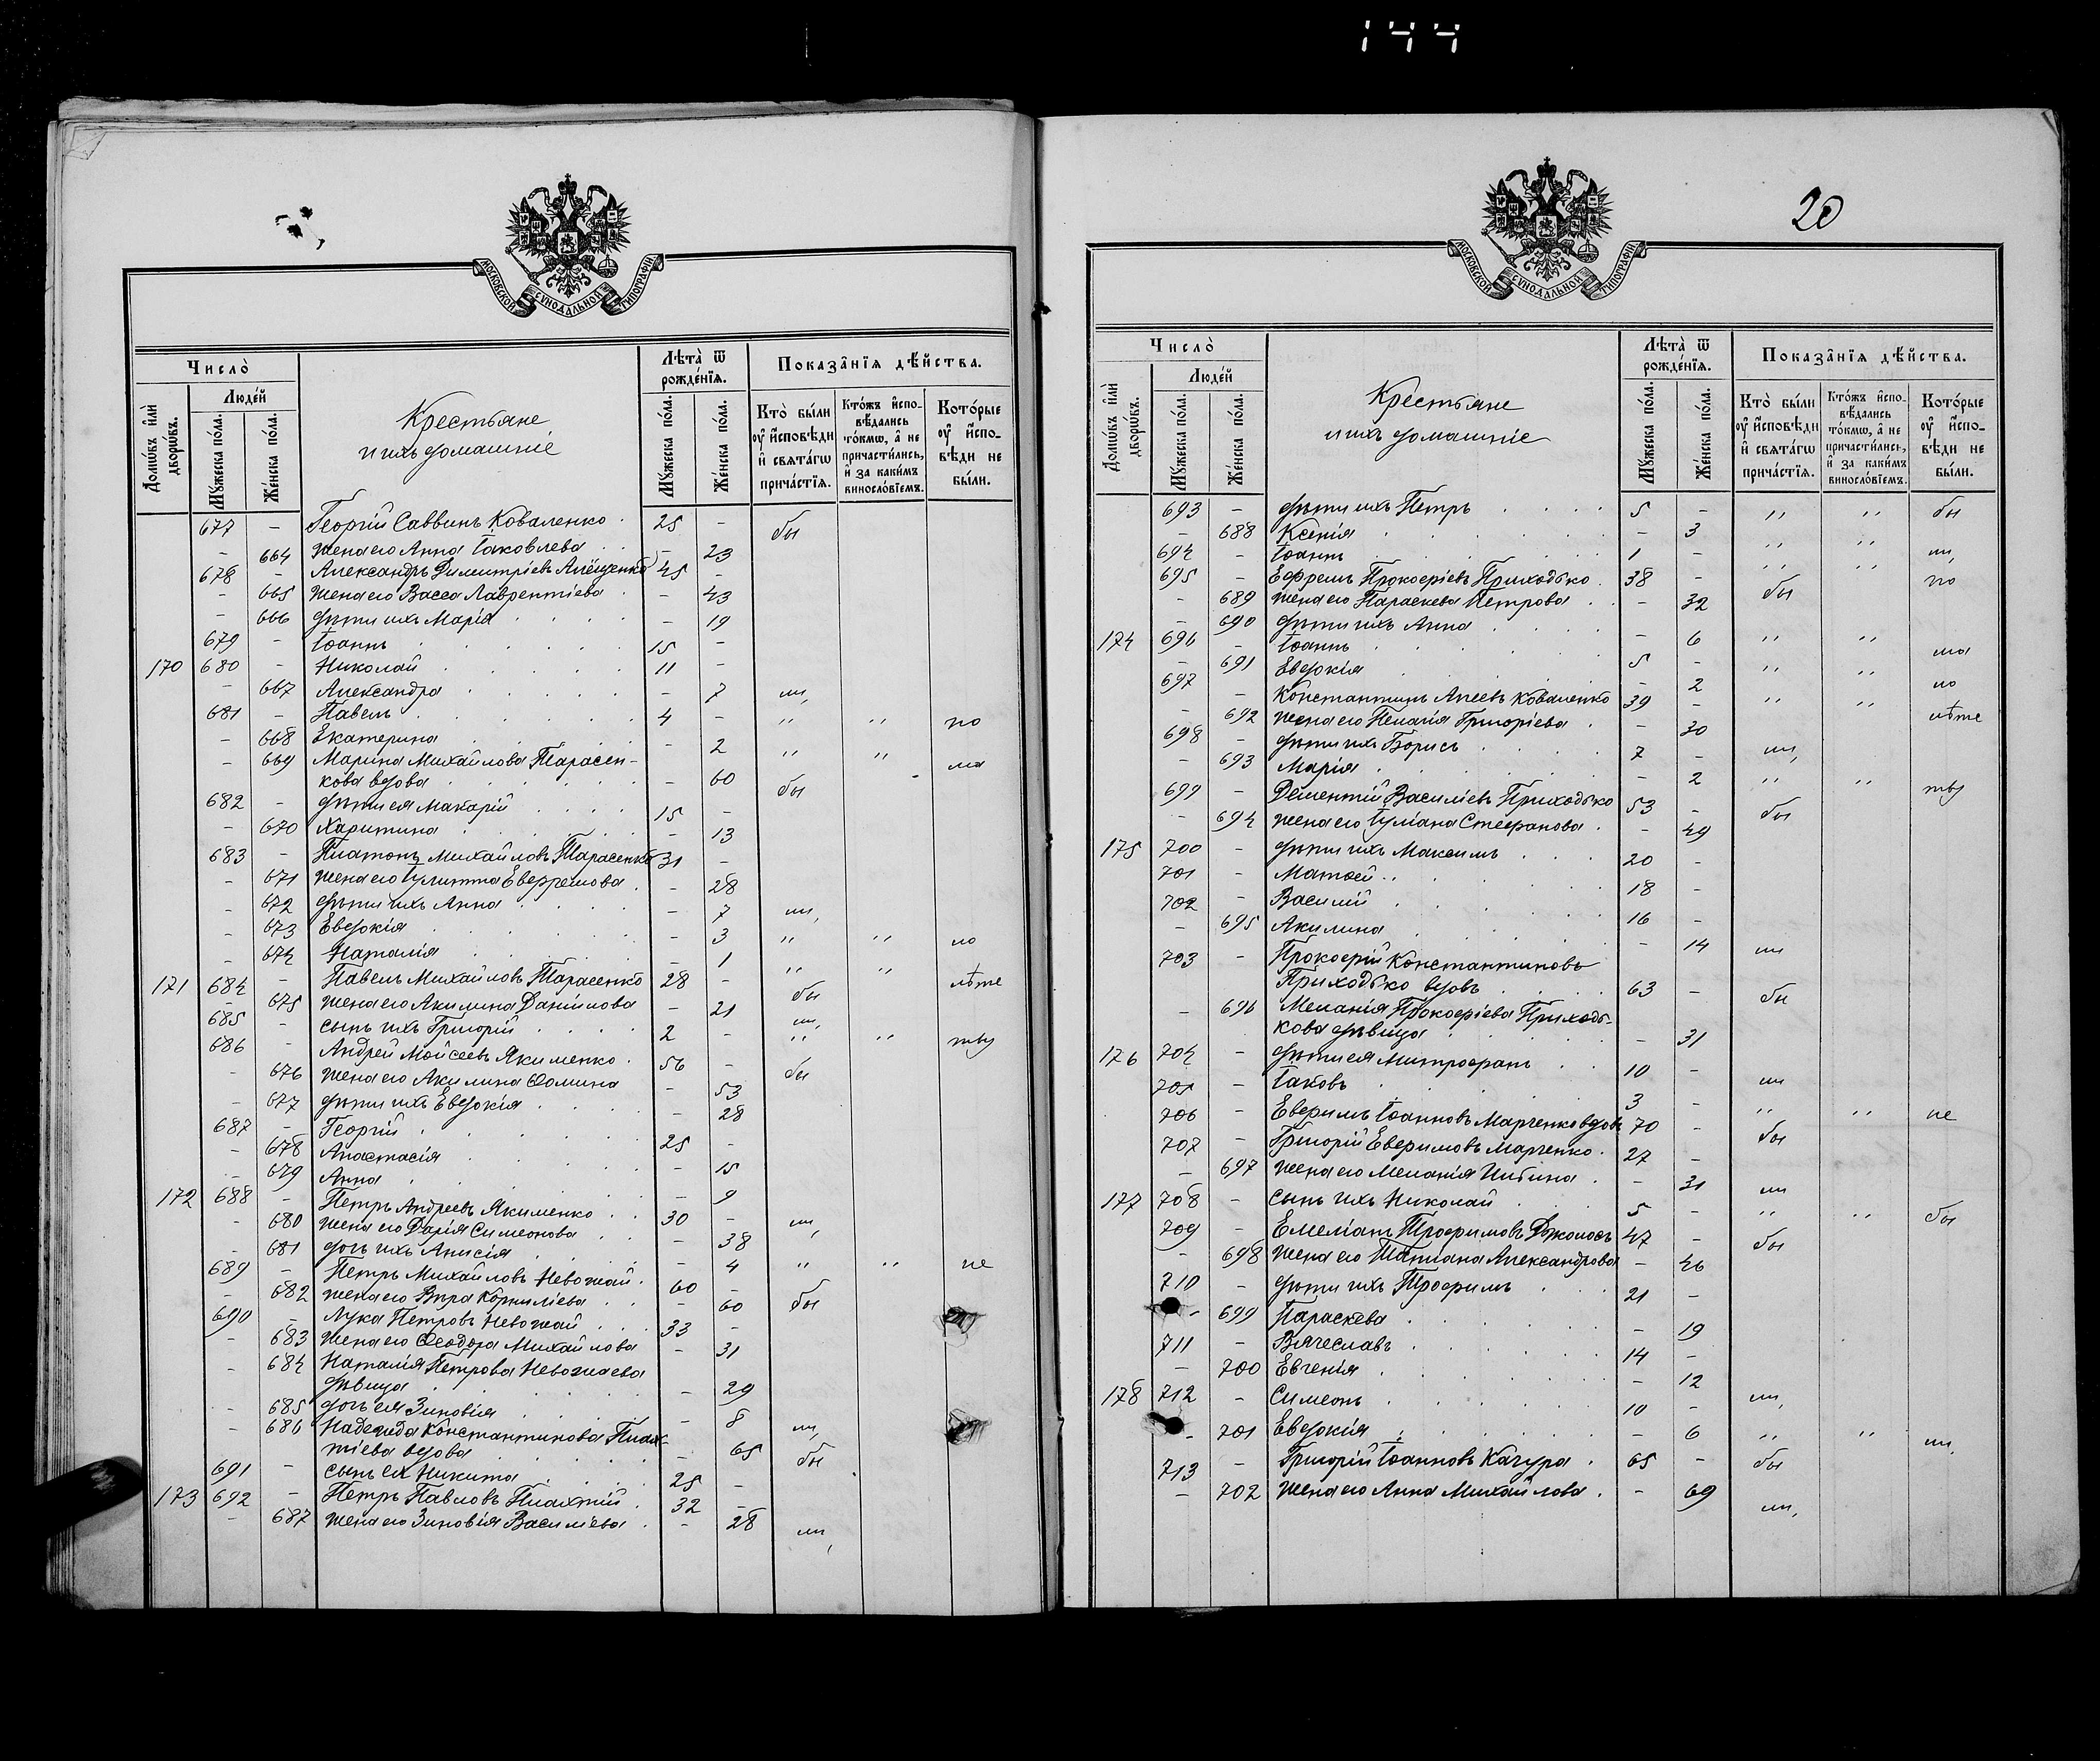 144
20
МОСКОВСКОЙ СУНОДАЛЬНОЙ ТИПОГРАФІИ
Число̀
Люде́й
Домѡ́въ и҆лѝ дворѡ́въ.
Мꙋ́жеска по́ла.
Же́нска по́ла.
Крестьяне
и ихъ домашніе
Лѣта̀ ѿ рожде́нїѧ.
Мꙋ́жеска по́ла.
Же́нска по́ла.
Показа̂нїѧ дѣ́йства.
Кто̀ бы́ли ᲂу҆ и҆сповѣди и҆ свѧта́гѡ прича́стїѧ.
Кто́жъ и҆спо-вѣдались то́кмѡ, а҆ не причасти́лись, и҆ за каки́мъ виносло́вїемъ.
Кото́рые ᲂу҆ и҆спо-вѣди не бы́ли.
677 - Георгій Саввинъ Коваленко 25 - бы
- 664 жена его Анна Іаковлева - 23
678 - Александръ Димитріевъ Алещенко 45 -
- 665 жена его Васса Лаврентіева - 43
- 666 дѣти ихъ Марія - 19
679 - Іоаннъ 15 -
170 680 - Николай 11 -
- 667 Александра - 7 ли,
681 - Павелъ 4 - " " по
- 668 Екатерина - 2 " " ма
- 669 Марина Михайлова Тарасен-
кова вдова - 60 бы
682 - дѣти ея Макарій 15 -
- 670 Харитина - 13
683 - Платонъ Михайловъ Тарасенко 31 -
- 671 жена его Іулитта Евфремова - 28
- 672 дѣти ихъ Анна - 7 ли,
- 673 Евдокія - 3 " " ло
- 674 Наталія - 1 " " лѣте
171 684 - Павелъ Михайловъ Тарасенко 28 - бы
- 675 жена его Акилина Даніилова - 21 ли,
685 - сынъ ихъ Григорій 2 - " " тву
686 - Андрей Моисеевъ Якименко 56 - бы
- 676 жена его Акилина Ѳомина - 53
- 677 дѣти ихъ Евдокія - 28
687 - Георгій 25 -
- 678 Анастасія - 15
- 679 Анна - 9
172 688 - Петръ Андреевъ Якименко 30 -
- 680 жена его Дарія Симеонова - 38 ли,
- 681 дочь ихъ Анисія - 4 " " не
689 - Петръ Михайловъ Невожай 60 - бы
- 682 жена его Вѣра Корниліева - 60
690 - Лука Петровъ Невожай 33 -
- 683 жена его Ѳеодора Михайлова - 31
- 684 Наталія Петрова Невожаева
дѣвица - 29
- 685 дочь ея Зиновія - 8 ли,
- 686 Надежда Константинова Плах-
тіева вдова - 65 бы
691 - сынъ ея Никита 25 -
173 692 - Петръ Павловъ Плахтій 32 -
- 687 жена его Зиновія Василіева - 28 ли,
МОСКОВСКОЙ СУНОДАЛЬНОЙ ТИПОГРАФІИ
Число̀
Люде́й
Домѡ́въ и҆лѝ дворѡ́въ.
Мꙋ́жеска по́ла.
Же́нска по́ла.
Крестьяне
и ихъ домашніе
Лѣта̀ ѿ рожде́нїѧ.
Мꙋ́жеска по́ла.
Же́нска по́ла.
Показа̂нїѧ дѣ́йства.
Кто̀ бы́ли ᲂу҆ и҆сповѣди и҆ свѧта́гѡ прича́стїѧ.
Кто́жъ и҆спо-вѣдались то́кмѡ, а҆ не причасти́лись, и҆ за каки́мъ виносло́вїемъ.
Кото́рые ᲂу҆ и҆спо-вѣди не бы́ли.
693 - дѣти ихъ Петръ 5 - " " бы
- 688 Ксенія - 3 " " ли,
694 - Іоаннъ 1 - " " по
695 - Ефремъ Прокопіевъ Приходько 38 - бы
- 689 жена его Параскева Петрова - 32
- 690 дѣти ихъ Анна - 6 " " ма
174 696 - Іоаннъ 5 - " " ло
- 691 Евдокія - 2 " " лѣте
697 - Константинъ Алеевъ Коваленко 39 -
- 692 жена его Пелагія Григоріева - 30 ли,
698 - дѣти ихъ Борисъ 7 -
- 693 Марія - 2 " " тву
699 - Дементій Василіевъ Приходько 53 - бы
- 694 жена его Іуліана Стефанова - 49
175 700 - дѣти ихъ Максимъ 20 -
701 - Матѳей 18 -
702 - Василій 16 -
- 695 Акилина - 14 ли
703 - Прокофій Константиновъ
Приходько вдовъ 63 - бы
- 696 Меланія Прокофіева Приходь-
кова дѣвица - 31
176 704 - дѣти ея Митрофанъ 10 - ли
705 - Іаковъ 3 - " " не
706 - Евфимъ Іоанновъ Марченко вдовъ 70 - бы
707 - Григорій Евфимовъ Марченко 27 -
- 697 жена его Меланія Ильина - 31 ли
177 708 - сынъ ихъ Николай 5 - " " бы
709 - Емеліанъ Трофимовъ Джолосъ 47 - бы
- 698 жена его Татіана Александрова - 46
710 - дѣти ихъ Трофимъ 21 -
- 699 Параскева - 19
711 - Вячеславъ 14 -
- 700 Евгенія - 12
178 712 - Симеонъ 10 - ли,
- 701 Евдокія - 6 " " ли,
713 - Григорій Іоанновъ Качура 65 - бы
- 702 жена его Анна Михайлова - 69 ли,